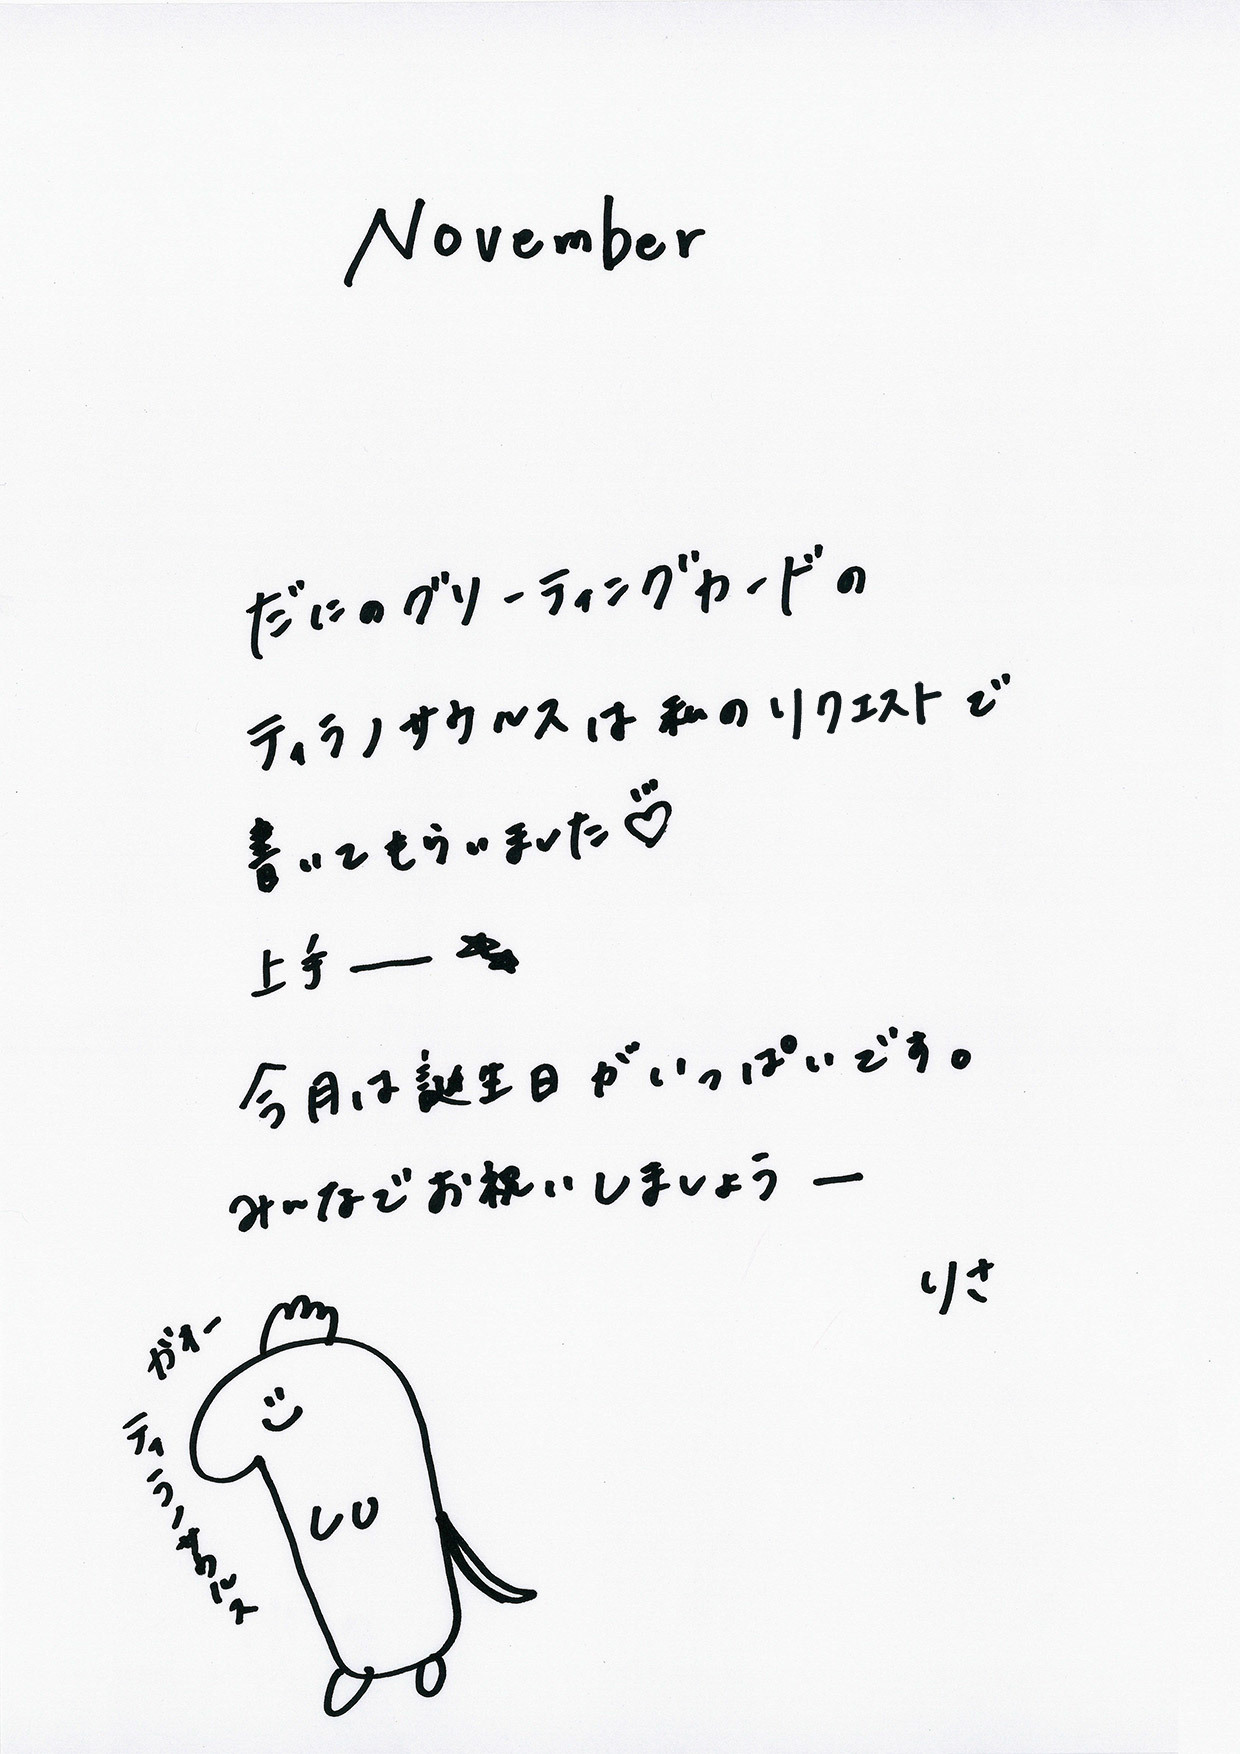 November
だにのグリーティングカードの
ティラノサウルスは私のリクエストで
書いてもらいました♡
上手ー★★
今月は誕生日がいっぱいです。
みんなでお祝いしましょうー
りさ
ガオー
ティラノサウルス